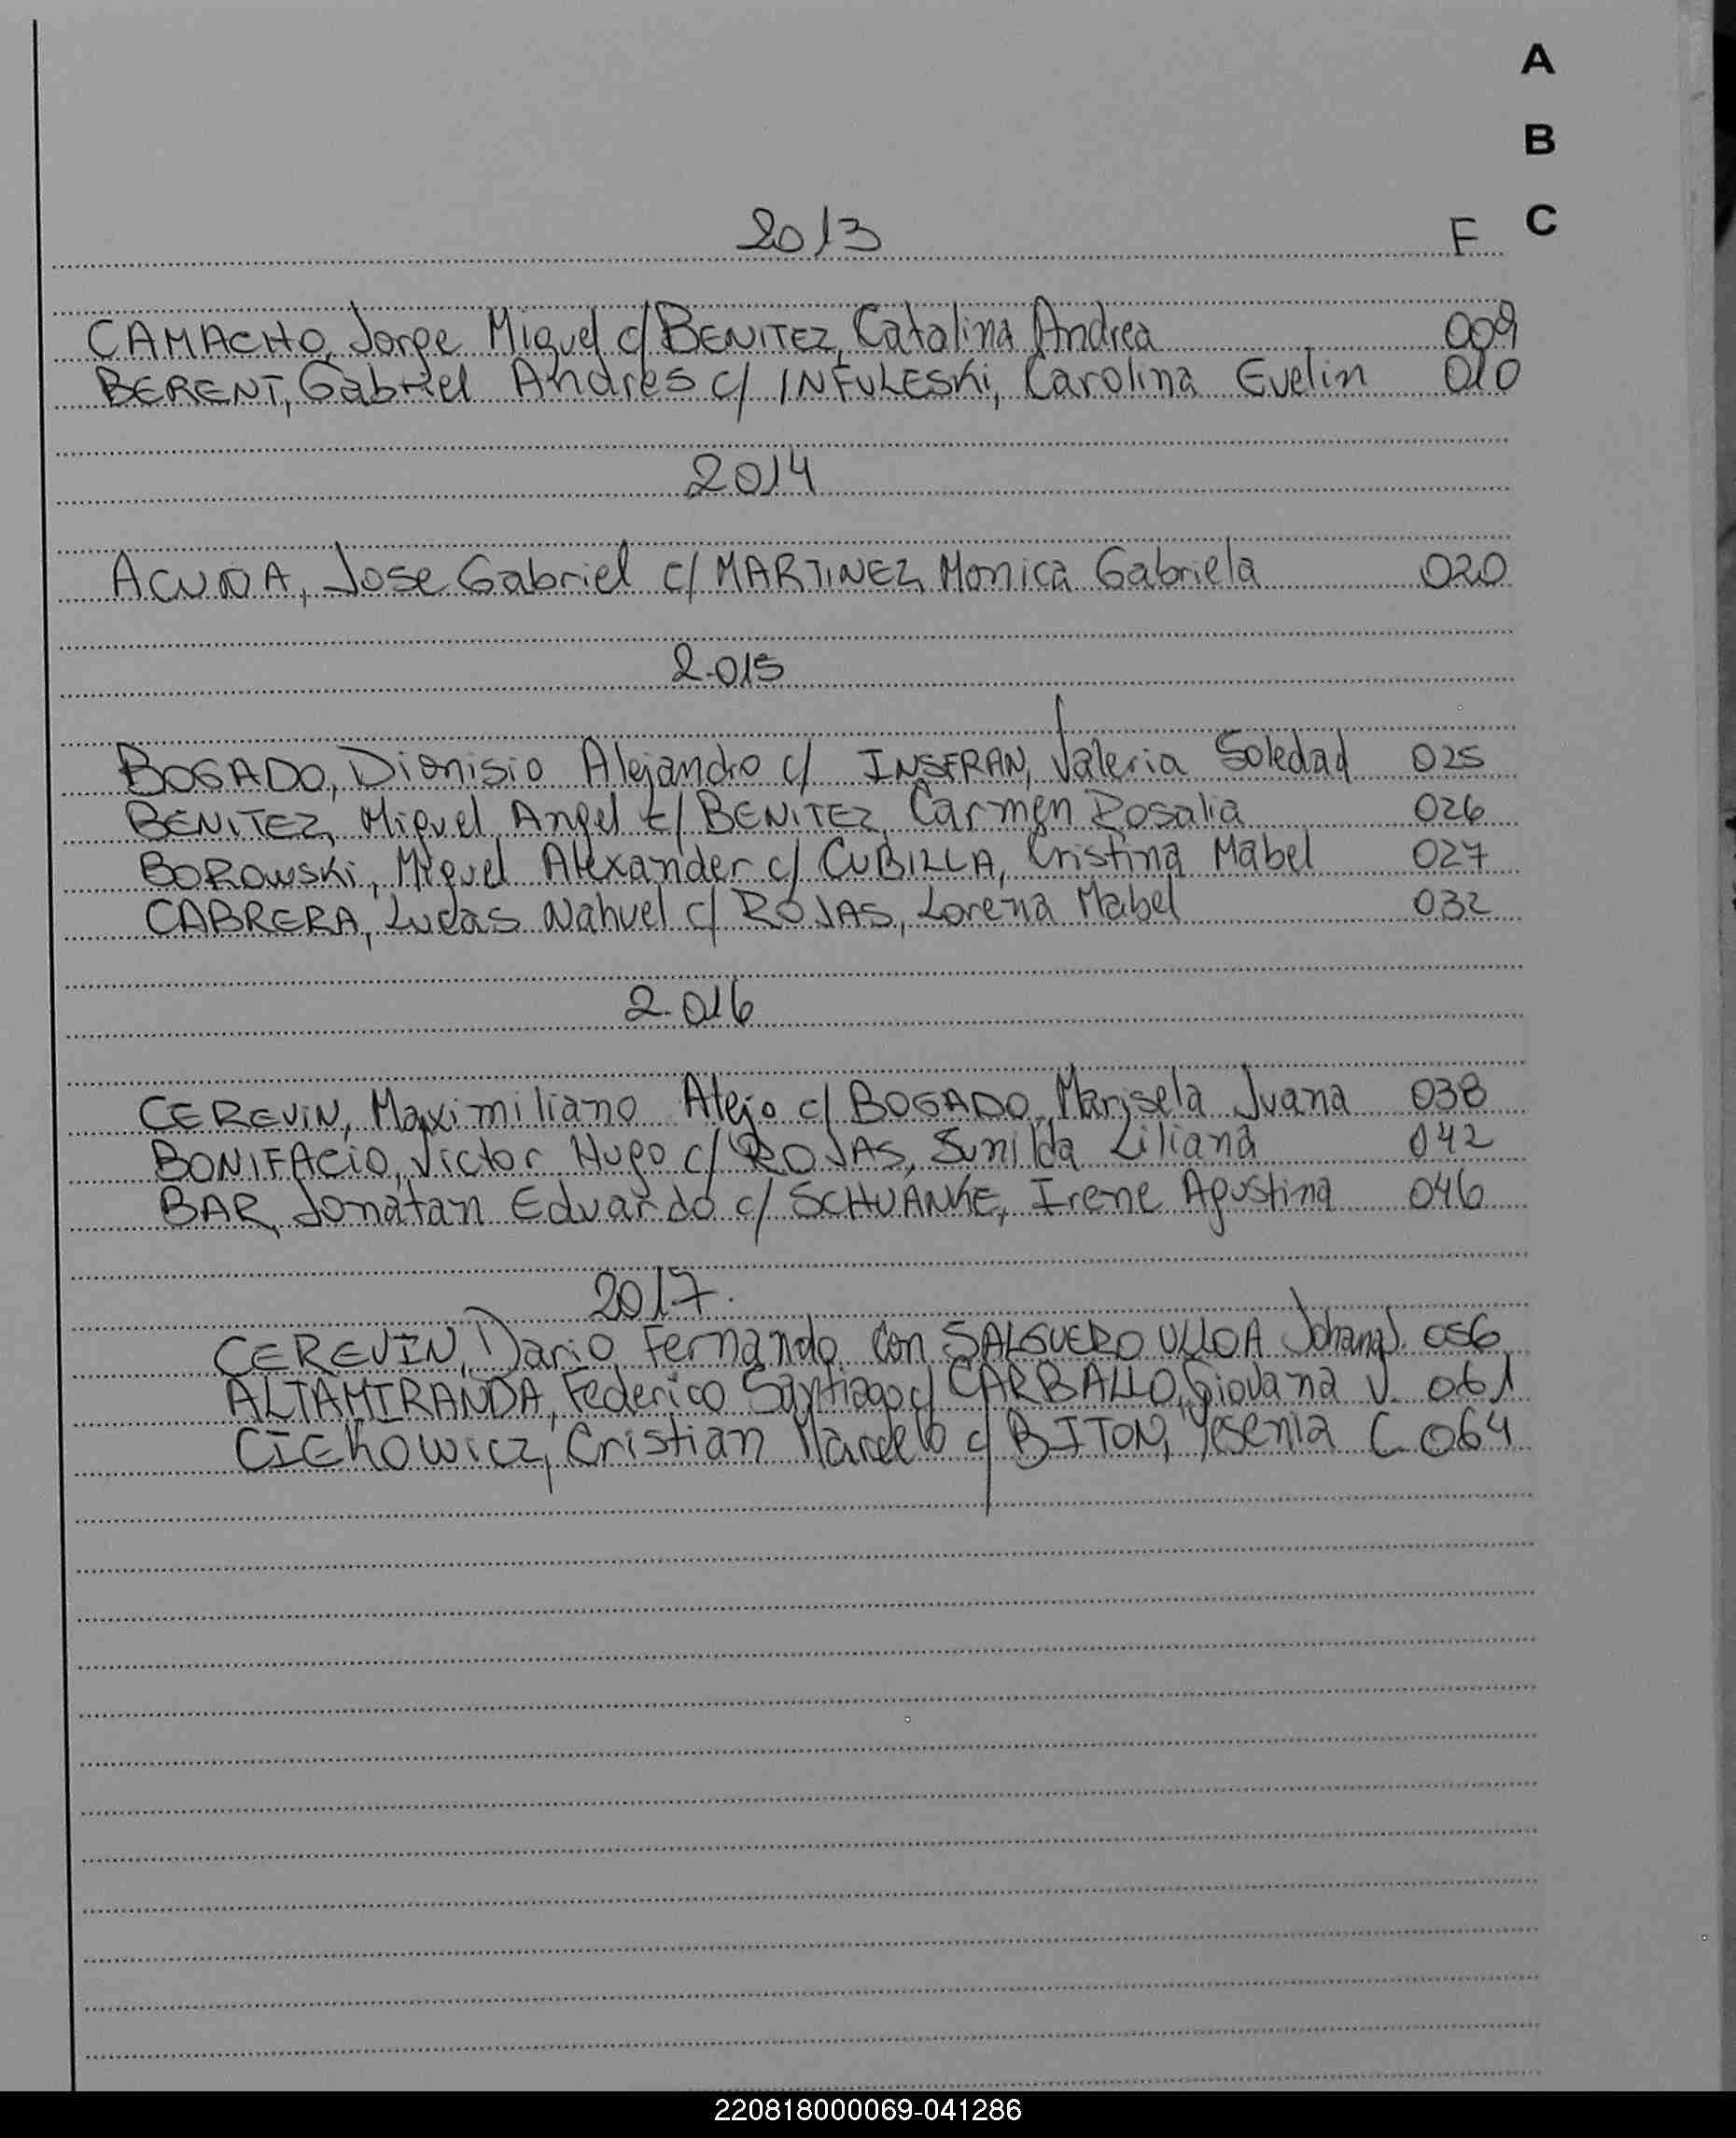 A
B
C
2013 F
CAMACHO, Jorge Miguel c/ BENITEZ, Catalina Andrea 009
BERENT, Gabriel Andres c/ INFULESKi, Carolina Evelin 010
2014
ACUÑA, Jose Gabriel c/ MARTINEZ, Monica Gabriela 020
2.015
BOGADO, Dionisio Alejandro c/ INSFRAN, Valeria Soledad 025
BENITEZ, Miguel Angel c/ BENITEZ, Carmen Rosalia 026
BOROWSKi, Miguel Alexander c/ CUBILLA, Cristina Mabel 027
CABRERA, Lucas Nahuel c/ ROJAS, Lorena Mabel 032
2.016
CEREVIN, Maximiliano Alejo c/ BOGADO, Marisela Juana 038
BONIFACIO, Victor Hugo c/ ROJAS, Sunilda Liliana 042
BAR, Jonatan Eduardo c/ SCHUANKE, Irene Agustina 046
2017.
CEREVIN, Dario Fernando con SALGUERO ULLOA Johana J. 056
ALTAMIRANDA, Federico Santiago c/ CARBALLO, Giovana V. 061
CIEKOWICZ, Cristian Marcelo c/ BITON, Yesenia C. 064
220818000069-041286